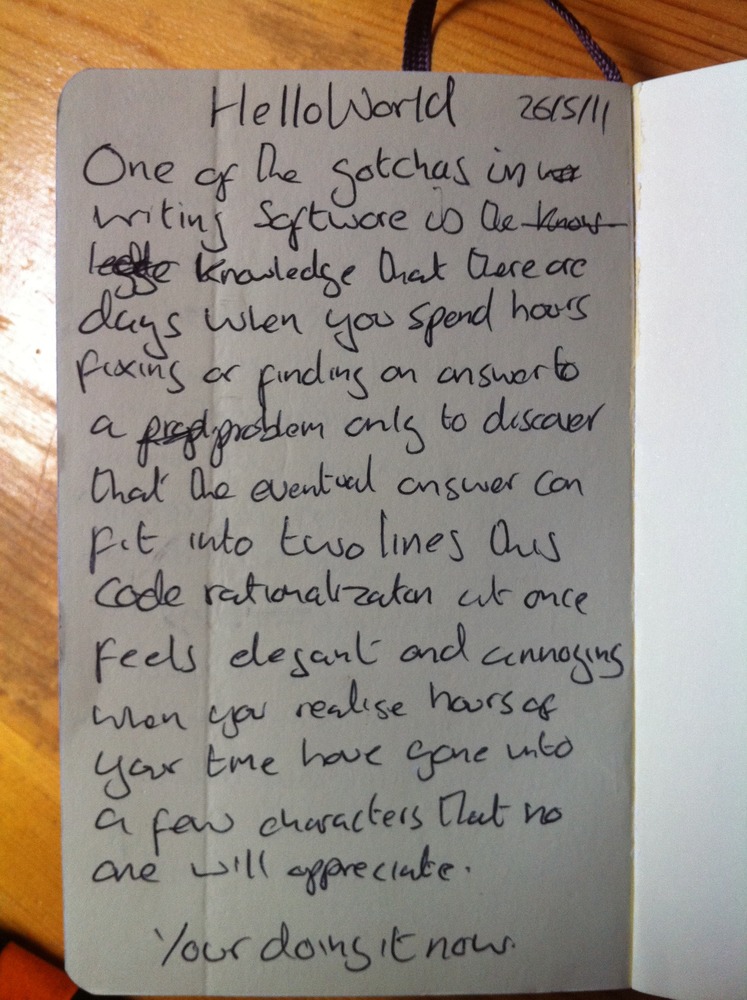 HelloWorld 26/5/11
One of the gotchas in
writing Software is the know
knowledge that there are
days when you spend hours
fixing or finding an answer to
a problem only to discover
that the eventual answer can
fit into two lines this
code rationalizaton at once
feels elegant and annoying
when you realise hours of
your time have gone into
a few characters that no
one will appreciate.
Your doing it now.